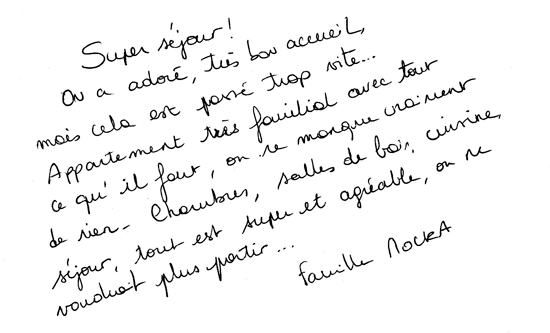 Super séjour!
On a adoré, très bon accueil,
mais cela est passé trop vite...
Appartement très familial avec tout
ce qu'il faut, on ne manque vraiment
de rien - Chambres, salles de bain, cuisine,
séjour, tout est super et agréable, on ne
voudrait plus partir...
Famille